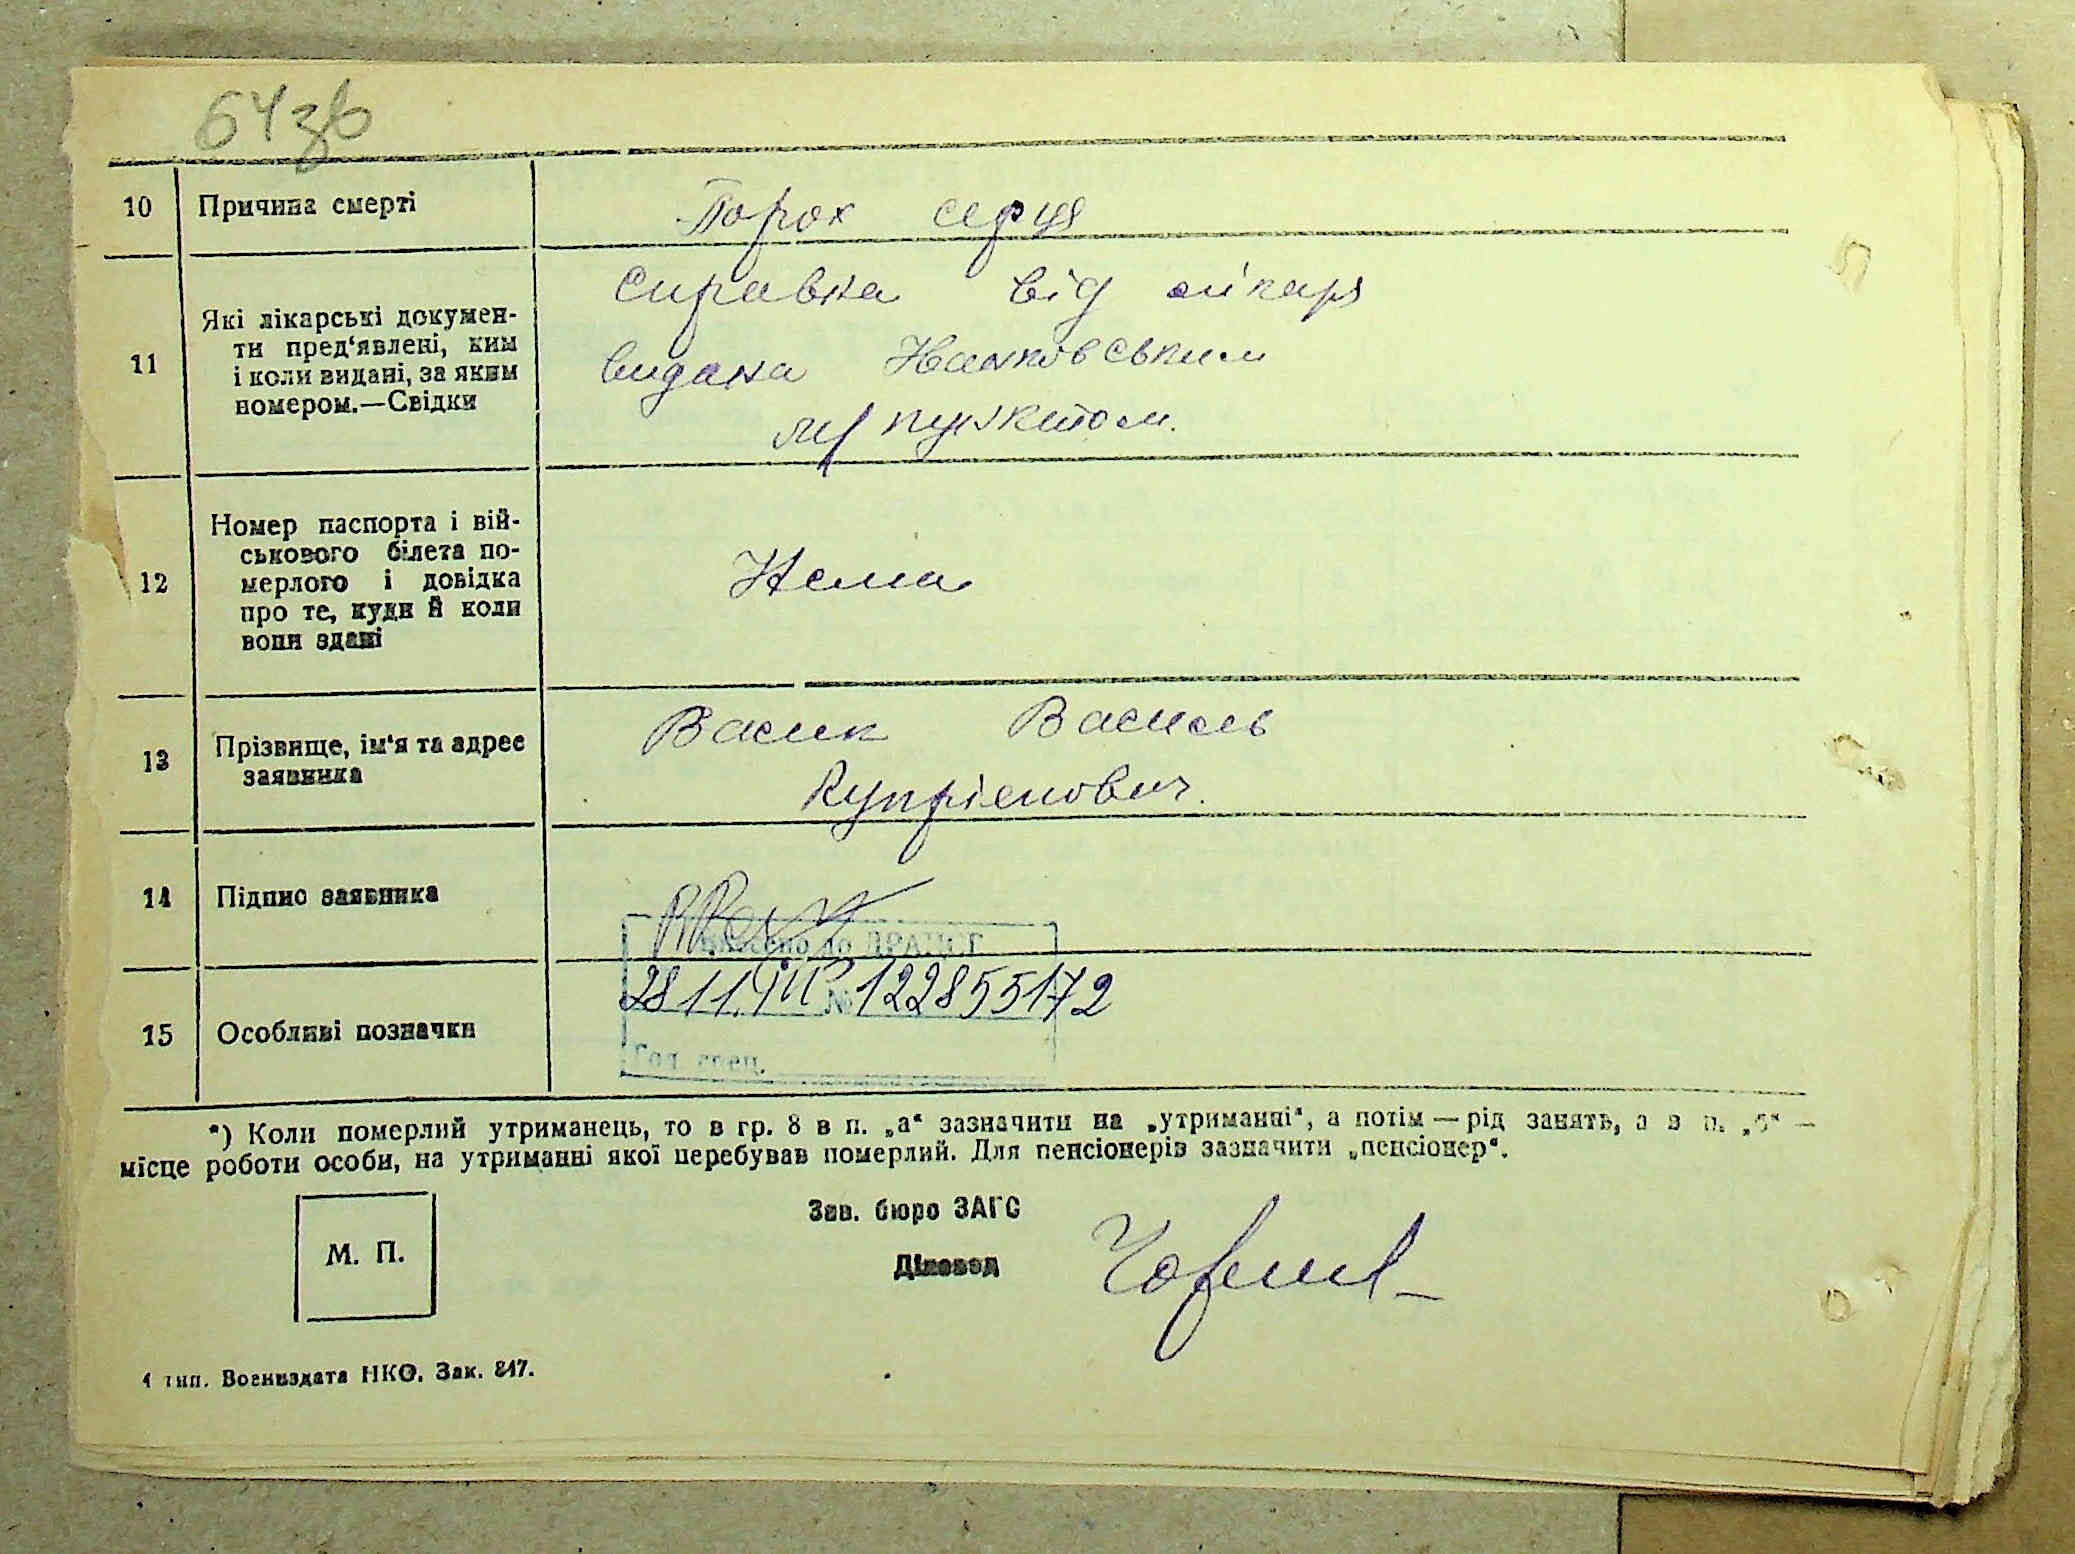 64зв
10 Причина смерті Порок серця
11 Які лікарські документи пред‘явлені, ким і коли видані, за яким номером.—Свідки
Справка від лікаря
видана
пунктом.
12 Номер паспорта і вій-
ськового білета по-
мерлого і довідка
про те, куди й коли
вони здані
Нема
13 Прізвище, ім‘я та адрес
заявника
Васик Василь
Купріенович.
14 Підпис заявника
Внесено до ДРАЦСГ
28 11. № 122855172
15 Особливі позначки
Гол. спец.
*) Коли померлий утриманець, то в гр. 8 в п. „а“ зазначити на „утриманні“, а потім — рід занять, а в п. „б“ —
місце роботи особи, на утриманні якої перебував померлий. Для пенсіонерів зазначити „пенсіонер“.
М. П.
Зав. бюро ЗАГС
Діловод
1 тип. Воениздата НКО. Зак. 847.